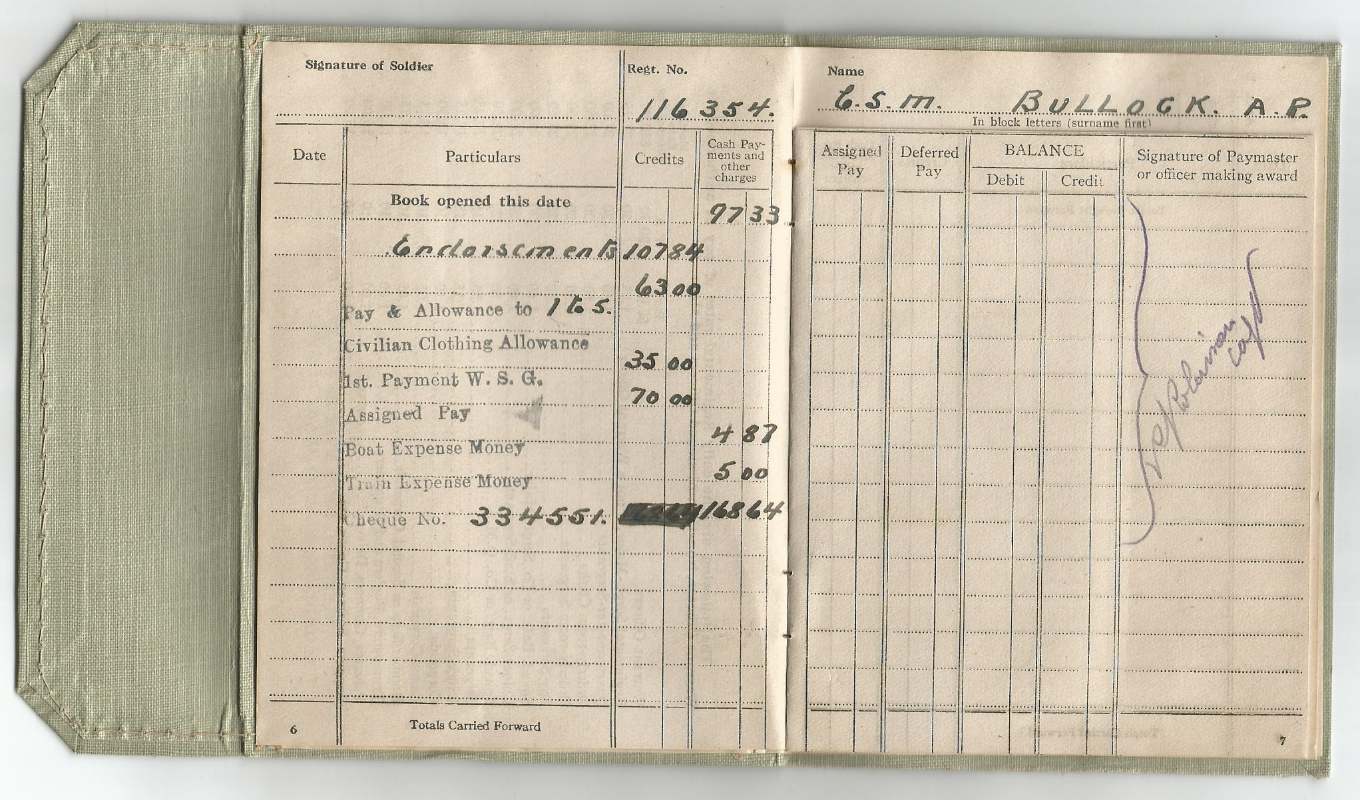 Signature of Soldier
Regt. No.
116354.
Date
Particulars
Credits
Cash Pay-
ments and
other
charges
Book opened this date
97 33
Endorsements 107 84
63 00
Pay & Allowance to
Civilian Clothing Allowance
35 00
1st. Payment W. S. G.
70 00
Assigned Pay
4 87
Boat Expense Money
5 00
Train Expense Money
Cheque No. 334551. 168 64
6
Totals Carried Forward
Name
C.S.M. BULLOCK. A.P.
In block letters (surname first)
Assigned
Pay
Deferred
Pay
BALANCE
Debit
Credit
Signature of Paymaster
or officer making award
Capt
7